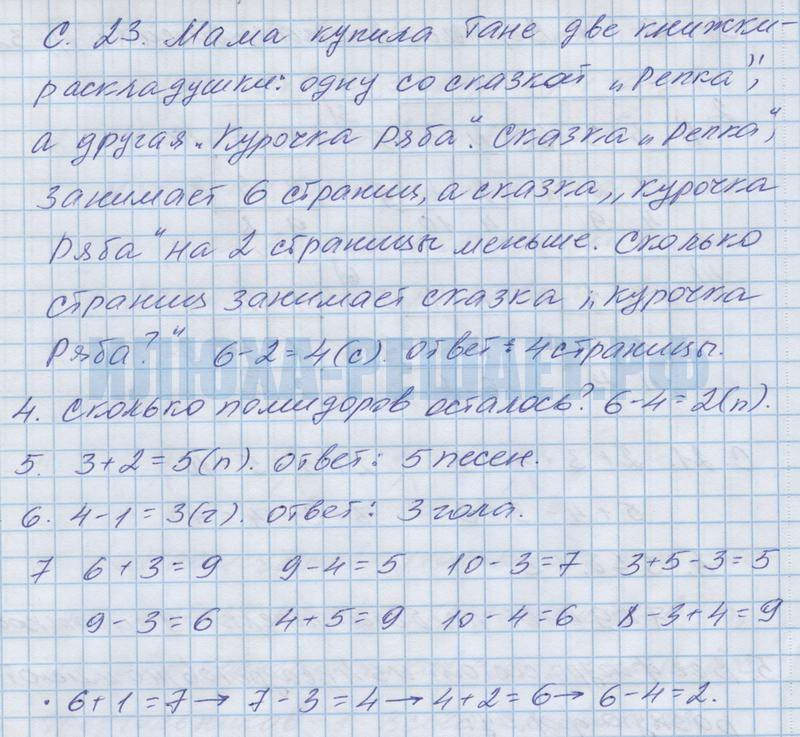 С. 23. Мама купила Тане две книжки-
раскладушки: одну со сказкой „Репка",
а другая „Курочка Ряба". Сказка „Репка"
занимает 6 страниц, а сказка „Курочка
Ряба" на 2 страницы меньше. Сколько
страниц занимает сказка „Курочка
Ряба?" 6-2=4(с). Ответ: 4 страницы.
ИЛЮХА-РЕШАЕТ.РФ
4. Сколько помидоров осталось? 6-4=2(п).
5. 3+2=5(п). Ответ: 5 песен.
6. 4-1=3(г). Ответ: 3 гола.
7 6+3=9 9-4=5 10-3=7 3+5-3=5
9-3=6 4+5=9 10-4=6 8-3+4=9
· 6+1=7→ 7-3=4→4+2=6→ 6-4=2.